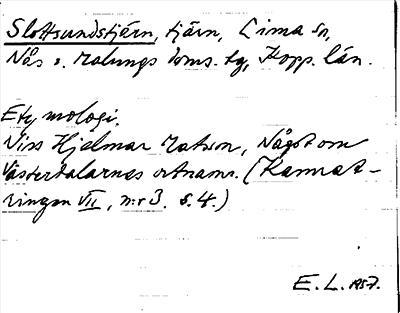 Slottsundstjärn, tjärn, Lima sn,
Nås o. Malungs doms. tg, Kopp. län.
Etymologi.
Hjelmar Matson, Något om
Västerdalarnes ortnamn. (Kamrat-
ringen VII, nr 3. s. 4.)
E. L. 1957.